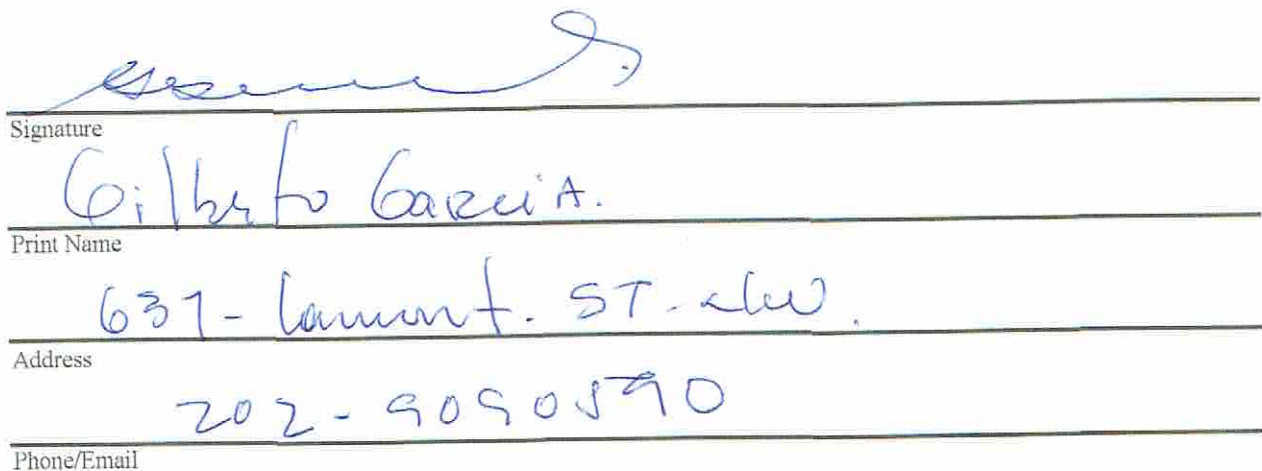 Signature
Gilberto Garcia.
Print Name
637- Lamont. ST. NW.
Address
202-9090590
Phone/Email